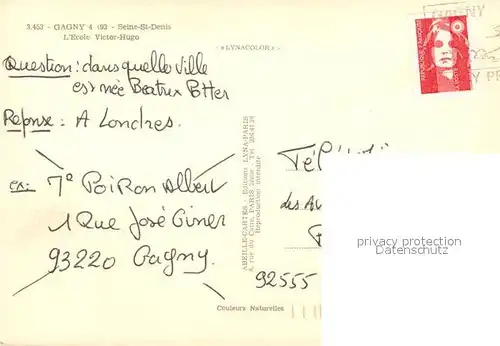 3.453 - GAGNY 4 (93 - Seine-St-Denis
L'Ecole Victor-Hugo
«LYNACOLOR»
GAGNY
RÉPUBLIQUE FRANÇAISE
Question: dans quelle ville
est née Beatrix Potter
Réponse: A Londres.
ex: Mr Poiron Albert
1 Rue José Giner
93220 Gagny.
ABEILLE-CARTES - Editions LYNA-PARIS
8, rue du Caire, PARIS 2ème - Tél. 236.41.28
Reproduction interdite
des
92555
Couleurs Naturelles
privacy protection
Datenschutz